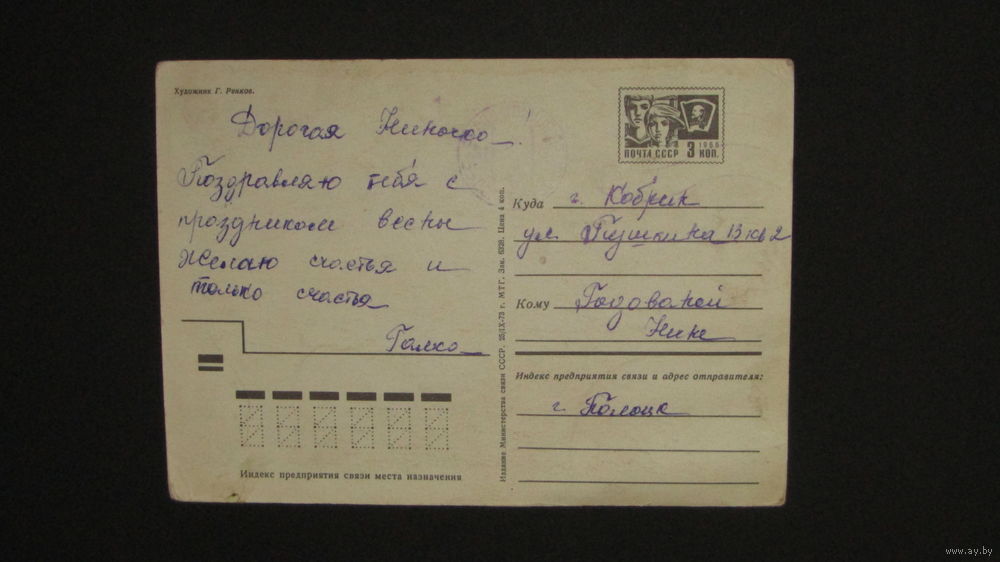 Художник Г. Ренков.
Дорогая Ниночка!
Поздравляю тебя с
праздником весны
желаю счастья и
только счастья
Галка
Индекс предприятия связи места назначения
Издание Министерства связи СССР. 25/IX-73 г. МТГ. Зак. 6328. Цена 4 коп.
1966
ПОЧТА СССР 3 КОП.
Куда г. Кобрин
ул. Пушкина 13 кв 2
Кому
Нине
Индекс предприятия связи и адрес отправителя:
г. Полоцк
www.ay.by